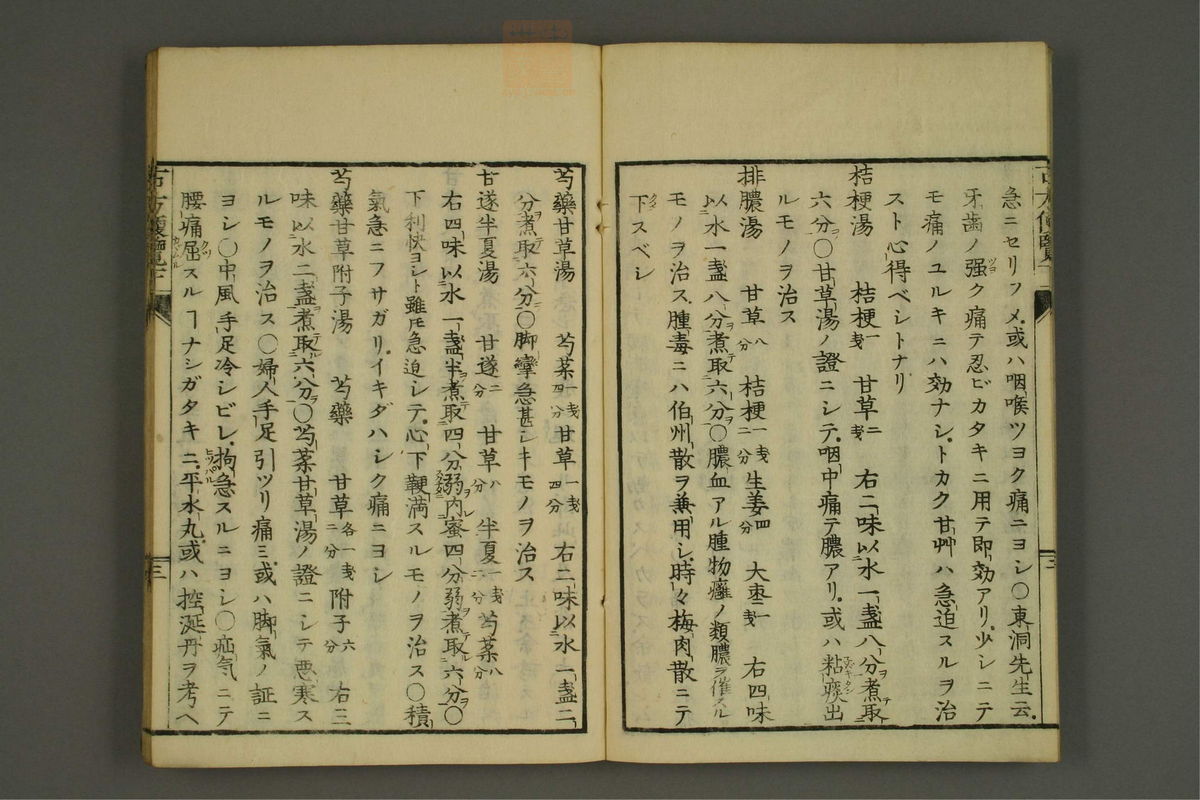 急ニセリフメ或ハ咽喉ツヨク痛ニヨシ〇東洞先生云
牙歯ノ强ク痛テ忍ビカタキニ用テ即効アリ少シニテ
モ痛ノユルキニハ効ナシトカク甘艸ハ急迫スルヲ治
スト心得ベシトナリ
桔梗湯 桔梗一戔 甘草二戔 右二味以水一盞八分煮取
六分〇甘草湯ノ證ニシテ咽中痛テ膿アリ或ハ粘痰出
ルモノヲ治ス
排膿湯 甘草八分 桔梗一戔二分 生姜四分 大枣二戔 右四味
以水一盞八分煮取六分〇膿血アル腫物癰ノ類膿ヲ催スル
モノヲ治ス腫毒ニハ伯州散ヲ兼用シ時々梅肉散ニテ
下スベシ
古方便覽 三
芍藥甘草湯 芍薬一戔四分 甘草一戔四分 右二味以水一盞二
分煮取六分〇脚攣急甚シキモノヲ治ス
甘遂半夏湯 甘遂二分 甘草八分 半夏一戔二分 芍薬八分
右四味以水一盞半煮取四分弱内蜜四分弱煮取六分〇
下利快ヨシト雖𪜈急迫シテ心下鞕満スルモノヲ治ス〇積
氣急ニフサガリイキダハシク痛ニヨシ
芍藥甘草附子湯 芍藥 甘草各一戔二分 附子六分 右三
味以水二盞煮取六分〇芍薬甘草湯ノ證ニシテ悪寒ス
ルモノヲ治ス〇婦人手足引ツリ痛ミ或ハ脚氣ノ証ニ
ヨシ〇中風手足冷シビレ拘急スルニヨシ〇疝気ニテ
腰痛屈スルヿナシガタキニ平水丸或ハ控涎丹ヲ考ヘ
古方便覽 三